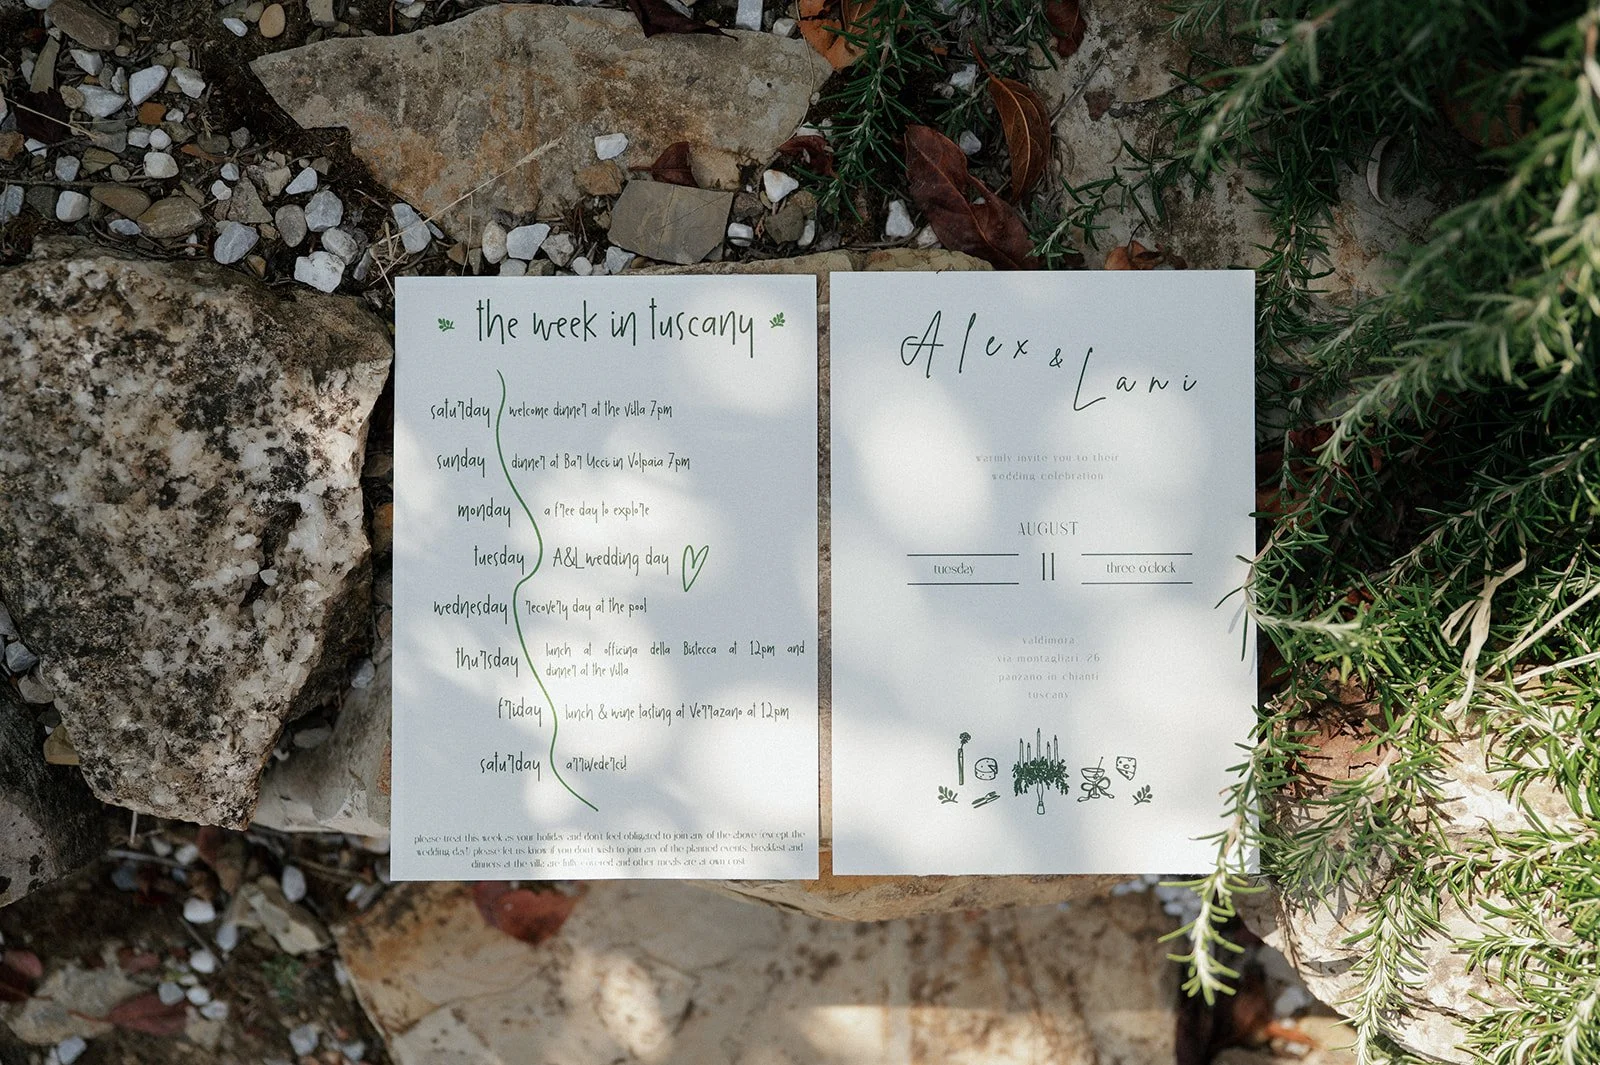 the week in tuscany
saturday welcome dinner at the villa 7pm
sunday dinner at Bar Ucci in Volpaia 7pm
monday a free day to explore
tuesday A&L wedding day
wednesday recovery day at the pool
thursday lunch at officina della Bistecca at 12pm and
dinner at the villa
friday lunch & wine tasting at Verrazano at 12pm
saturday arrivederci!
please treat this week as your holiday and don't feel obligated to join any of the above (except the
wedding day!) please let us know if you don't wish to join any of the planned events. breakfast and
dinners at the villa are fully covered and other meals are at own cost
Alex & Lani
warmly invite you to their
wedding celebration
AUGUST
tuesday 11 three o'clock
valdimora
via montagliari, 26
panzano in chianti
tuscany